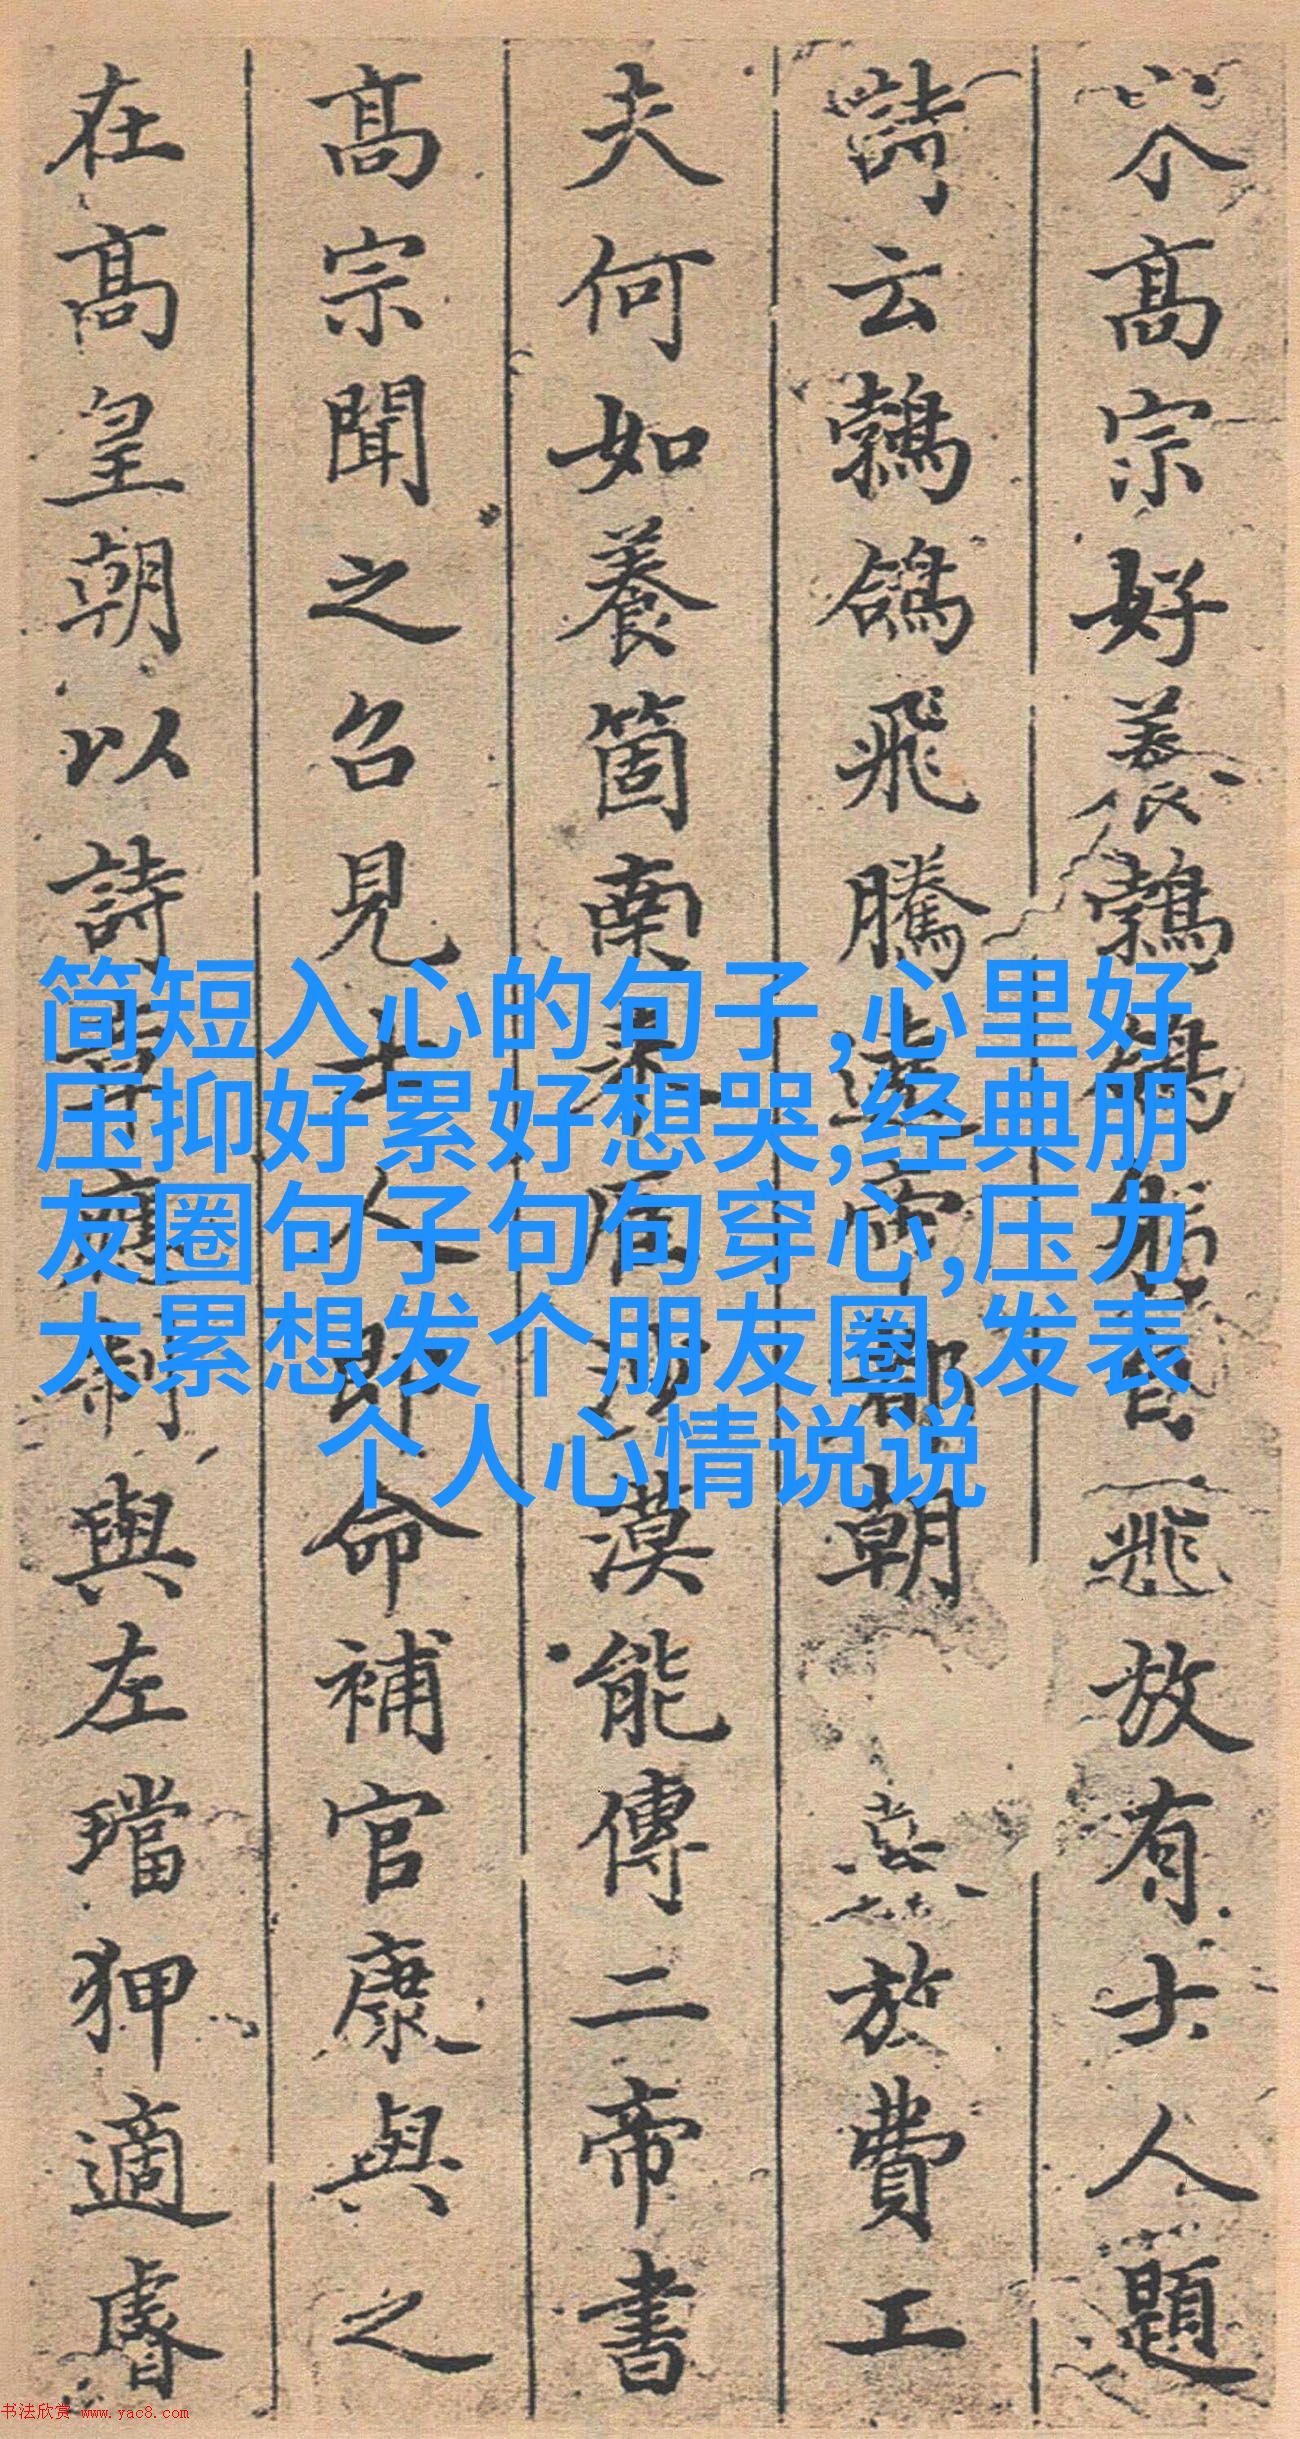 高宗好養鵓鴿躬自飛放有士人題
詩云鵓鴿飛騰遶帝都朝暮放費工
夫何如養箇南來鴈沙漠能傳二帝書
高宗聞之召見士人即命補官康與之
在高皇朝以詩章應制與左璫狎適睿
简短入心的句子,心里好
压抑好累好想哭,经典朋
友圈句子句句穿心,压力
大累想发个朋友圈,发表
个人心情说说
书法欣赏 www.yac8.com